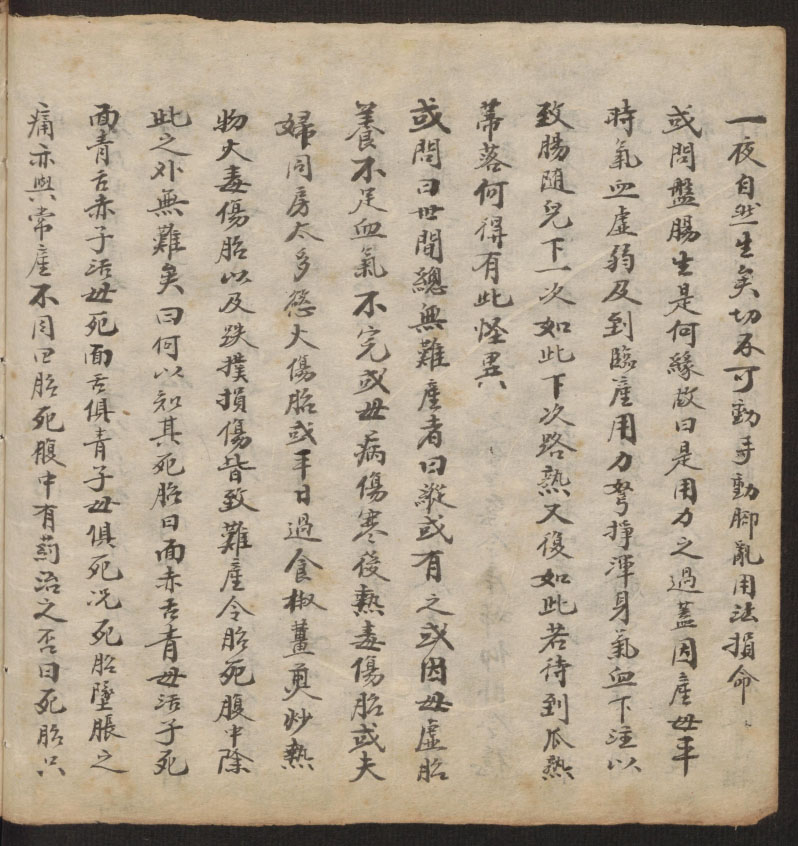 一夜自然生矣切不可動手動脚亂用法損命
或問盤腸生是何緣故曰是用力之過蓋因產母平
時氣血虛弱及到臨產用力努掙渾身氣血下注以
致腸隨兒下一次如此下次路熟又復如此若待到瓜熟
蒂落何得有此怪異
或問曰世間總無難產者曰縱或有之或因母虛胎
養不足血氣不完或母病傷寒後熱毒傷胎或夫
婦同房太多慾火傷胎或平日過食椒薑煎炒熱
物火毒傷胎以及跌撲損傷皆致難產令胎死腹中除
此之外無難矣曰何以知其死胎曰面赤舌青母活子死
面青舌赤子活母死面舌俱青子母俱死况死胎墜脹之
痛亦與常產不同曰胎死腹中有药治之否曰死胎只